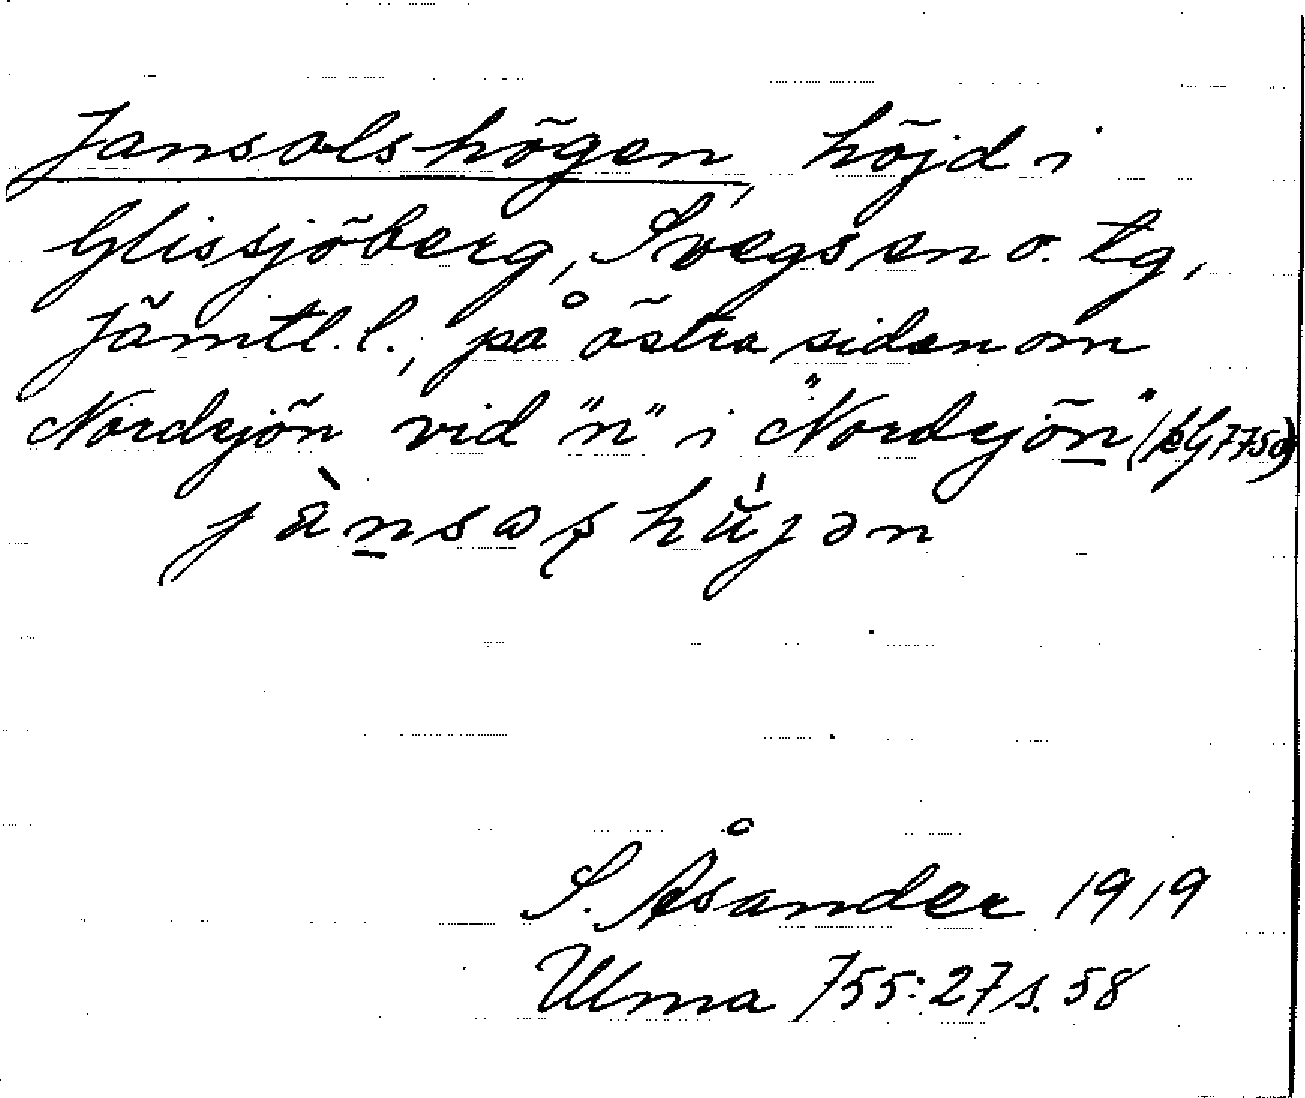 Jansolshögen, höjd i
Glissjöberg, Svegs sn o. tg,
Jämtl. l., på östra sidan om
Nordsjön vid "n" i "Nordsjön"
hŭ̍jən
S. Åsander 1919
Ulma 755:27 s. 58